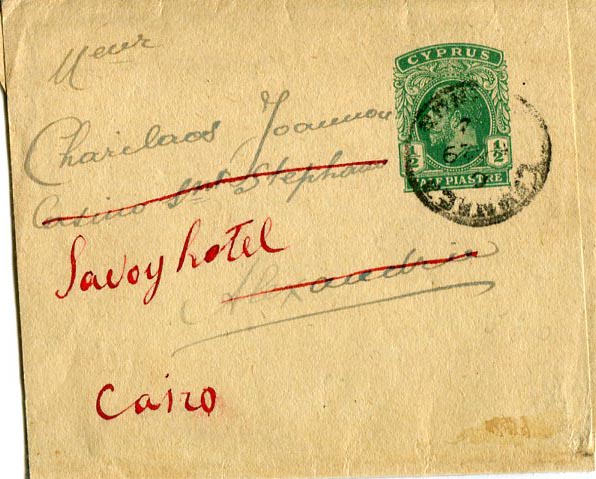 Mieur
CYPRUS
Charilaos Joannou
½ ½
HALF PIASTRE
Casino St Stephano
Savoy hotel
Alexandria
Cairo